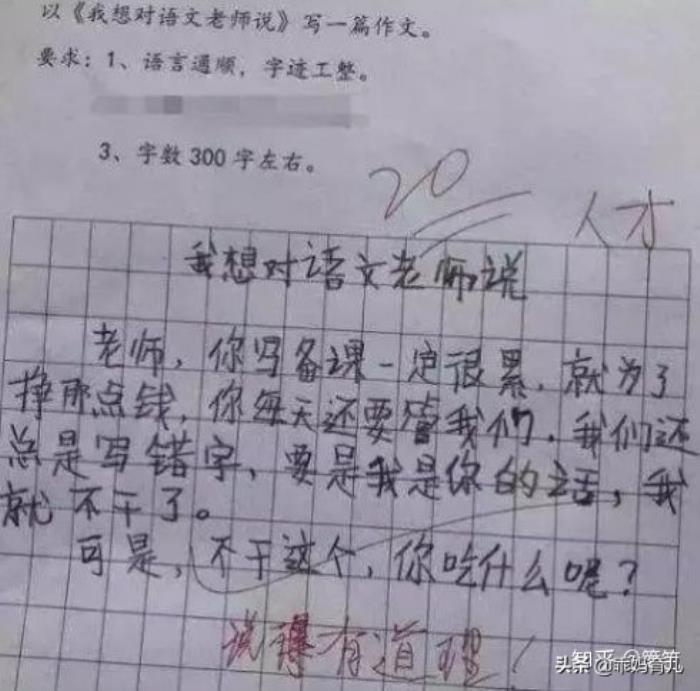 以《我想对语文老师说》写一篇作文。
要求：1、语言通顺，字迹工整。
3、字数300字左右。
20
人才
我想对语文老师说
老师，你写备课一定很累，就为了
挣那点钱，你每天还要管我们，我们还
总是写错字、要是我是你的话，我
就不干了。
可是，不干这个，你吃什么呢？
说得有道理！
知乎
头条 @ 妈育儿